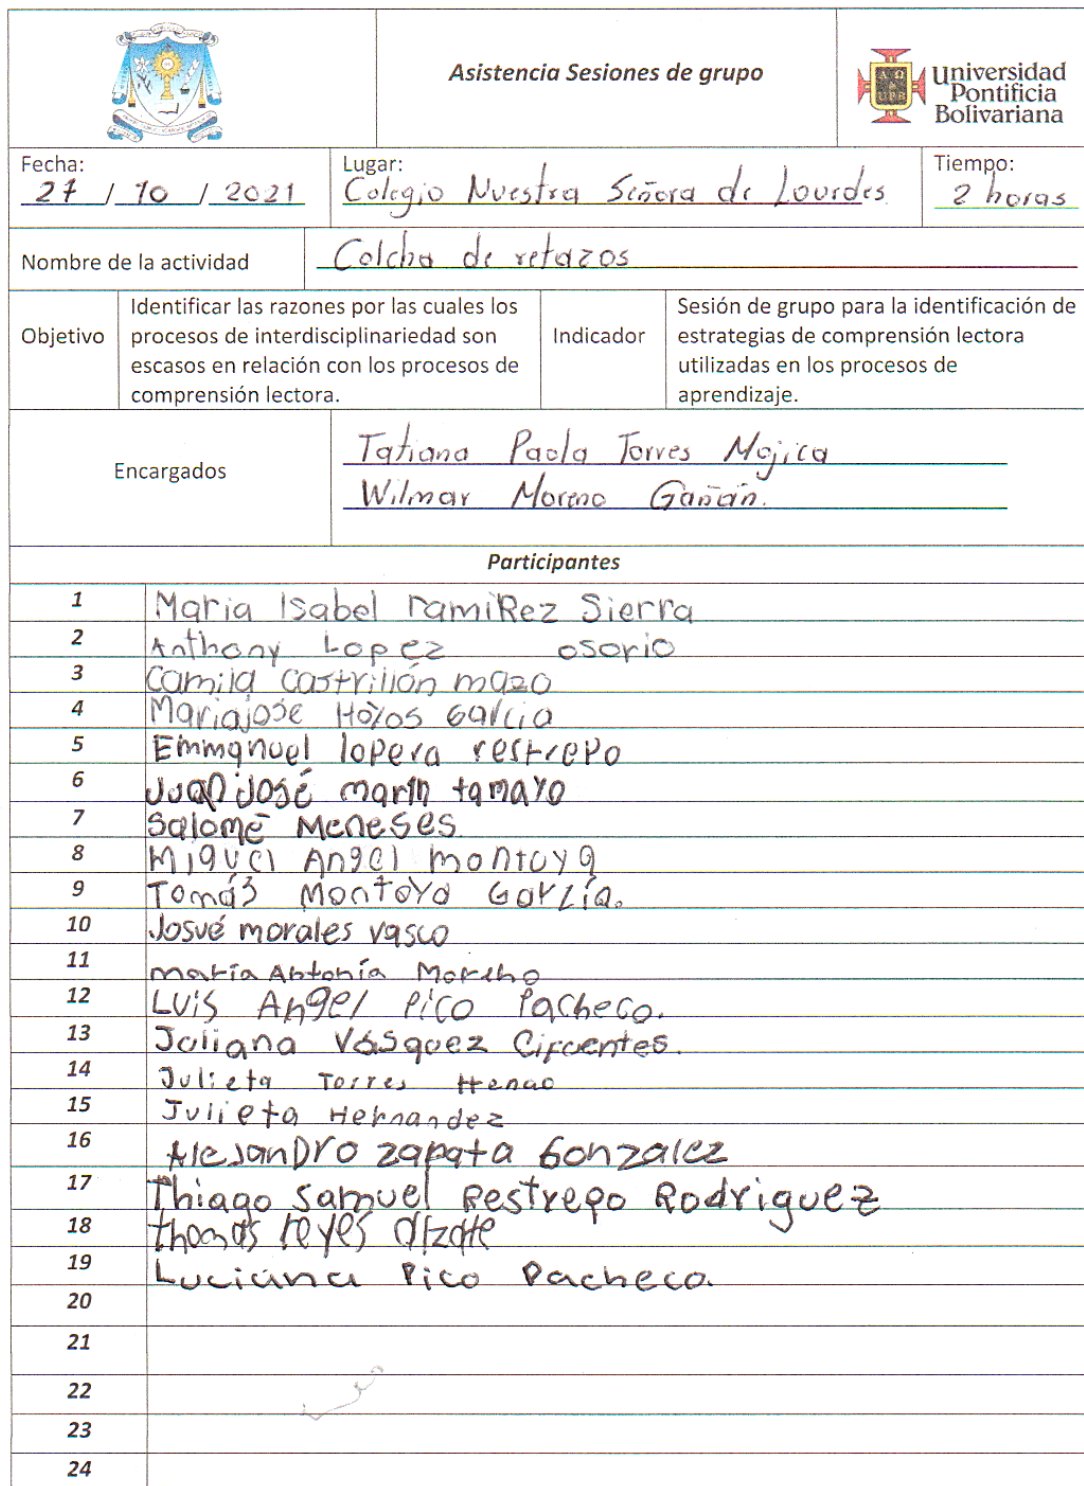 Asistencia Sesiones de grupo
Universidad
Pontificia
Bolivariana
Fecha:
27 / 10 / 2021
Lugar:
Colegio Nuestra Señora de Lourdes
Tiempo:
2 horas
Nombre de la actividad
Colcha de retazos
Objetivo
Identificar las razones por las cuales los
procesos de interdisciplinariedad son
escasos en relación con los procesos de
comprensión lectora.
Indicador
Sesión de grupo para la identificación de
estrategias de comprensión lectora
utilizadas en los procesos de
aprendizaje.
Encargados
Tatiana Paola Torres Mojica
Wilmar Moreno Gañán.
Participantes
1 Maria Isabel ramiRez Sierra
2 Anthony Lopez osorio
3 Camila Castrillón mazo
4 Mariajose Hoyos Garcia
5 Emmanuel lopera restrepo
6 Juan José marín tamayo
7 Salomé Meneses
8 Miguel Angel montoya
9 Tomás Montoya García.
10 Josué morales vasco
11 maría Antonía Moreno
12 Luis Angel Pico Pacheco.
13 Juliana Vásquez Cifuentes.
14 Julieta Torres Henao
15 Julieta Hernandez
16 AleJanDro zapata Gonzalez
17 Thiago Samuel Restrepo Rodriguez
18 thomas reyes alzate
19 Luciana Pico Pacheco.
20
21
22
23
24